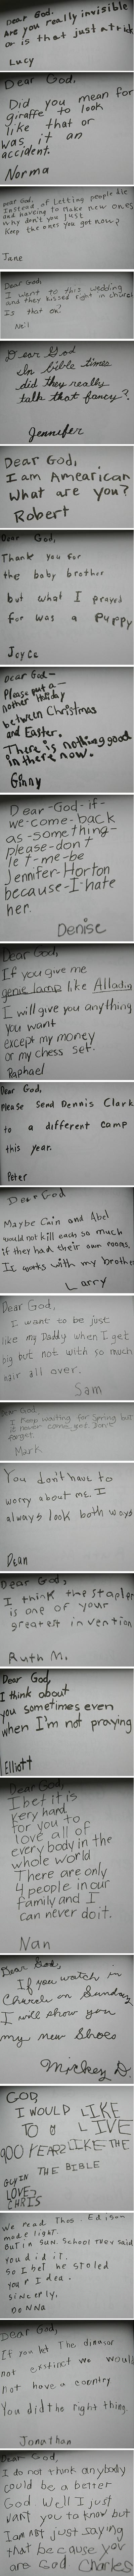 Dear God.
Are you really invisible
or is that just a trick
Lucy
Dear God,
Did you mean for
giraffe to look
like that or
was it an
accident.
Norma
Dear God,
Instead of letting people die
and haveing to make new ones
why don't you just
keep the ones you got now?
Jane
Dear God,
I went to this wedding
and they kissed right in church
Is that ok?
Neil
Dear God
In bible times
did they really
talk that fancy?
Jennifer
Dear God,
I am Amearican
What are you?
Robert
Dear God,
Thank you for
the baby brother
but what I prayed
for was a puppy
Joyce
Dear God-
Please put a-
nother Holiday
between Christmas
and Easter.
There is nothing good
in there now.
Ginny
Dear-God-if-
we-come-back
as-something-
please-don't
let-me-be
Jennifer-Horton
because-I-hate
her.
Denise
Dear God,
If you give me
genie lamp like Alladin
I will give you anything
you want
except my money
or my chess set.
Raphael
Dear God,
Please Send Dennis Clark
to a different camp
this year.
Peter
Dear God
Maybe Cain and Abel
would not kill each so much
if they had their own rooms.
It works with my brother
Larry
Dear God,
I want to be just
like my Daddy when I get
big but not with so much
hair all over.
Sam
Dear God,
I keep waiting for Spring but
it never come yet. Don't
forget.
Mark
You don't have to
worry about me. I
always look both ways
Dean
Dear God,
I think the stapler
is one of your
greatest invention
Ruth M.
Dear God
I think about
you sometimes even
when I'm not praying
Elliott
Dear God,
I bet it is
very hard
for you to
love all of
every body in the
whole world
There are only
4 people in our
family and I
can never do it.
Nan
Dear God,
If you watch in
Church on Sunday
I will show you
my new Shoes
Mickey D.
GOD,
I WOULD LIKE
TO LIVE
900 YEARZ LIKE THE
GUY IN THE BIBLE
LOVE,
CHRIS
We read Thos. Edison
made light.
But in Sun. School they said
you did it.
So I bet he stoled
your Idea.
Sincerly,
Donna
Dear God,
If you let the dinasor
not exstinct we would
not have a country
You did the right thing.
Jonathan
Dear God,
I do not think anybody
could be a better
God Well I just
want you to know but
I am not just saying
that because you
are God Charles